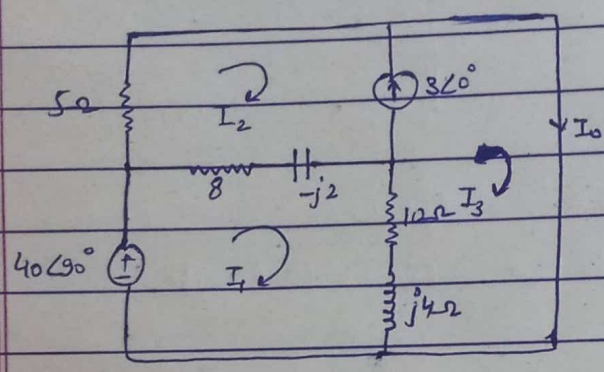 5Ω
3∠0°
I₂
I₀
8
-j2
10Ω
I₃
40∠90°
I₁
j4Ω